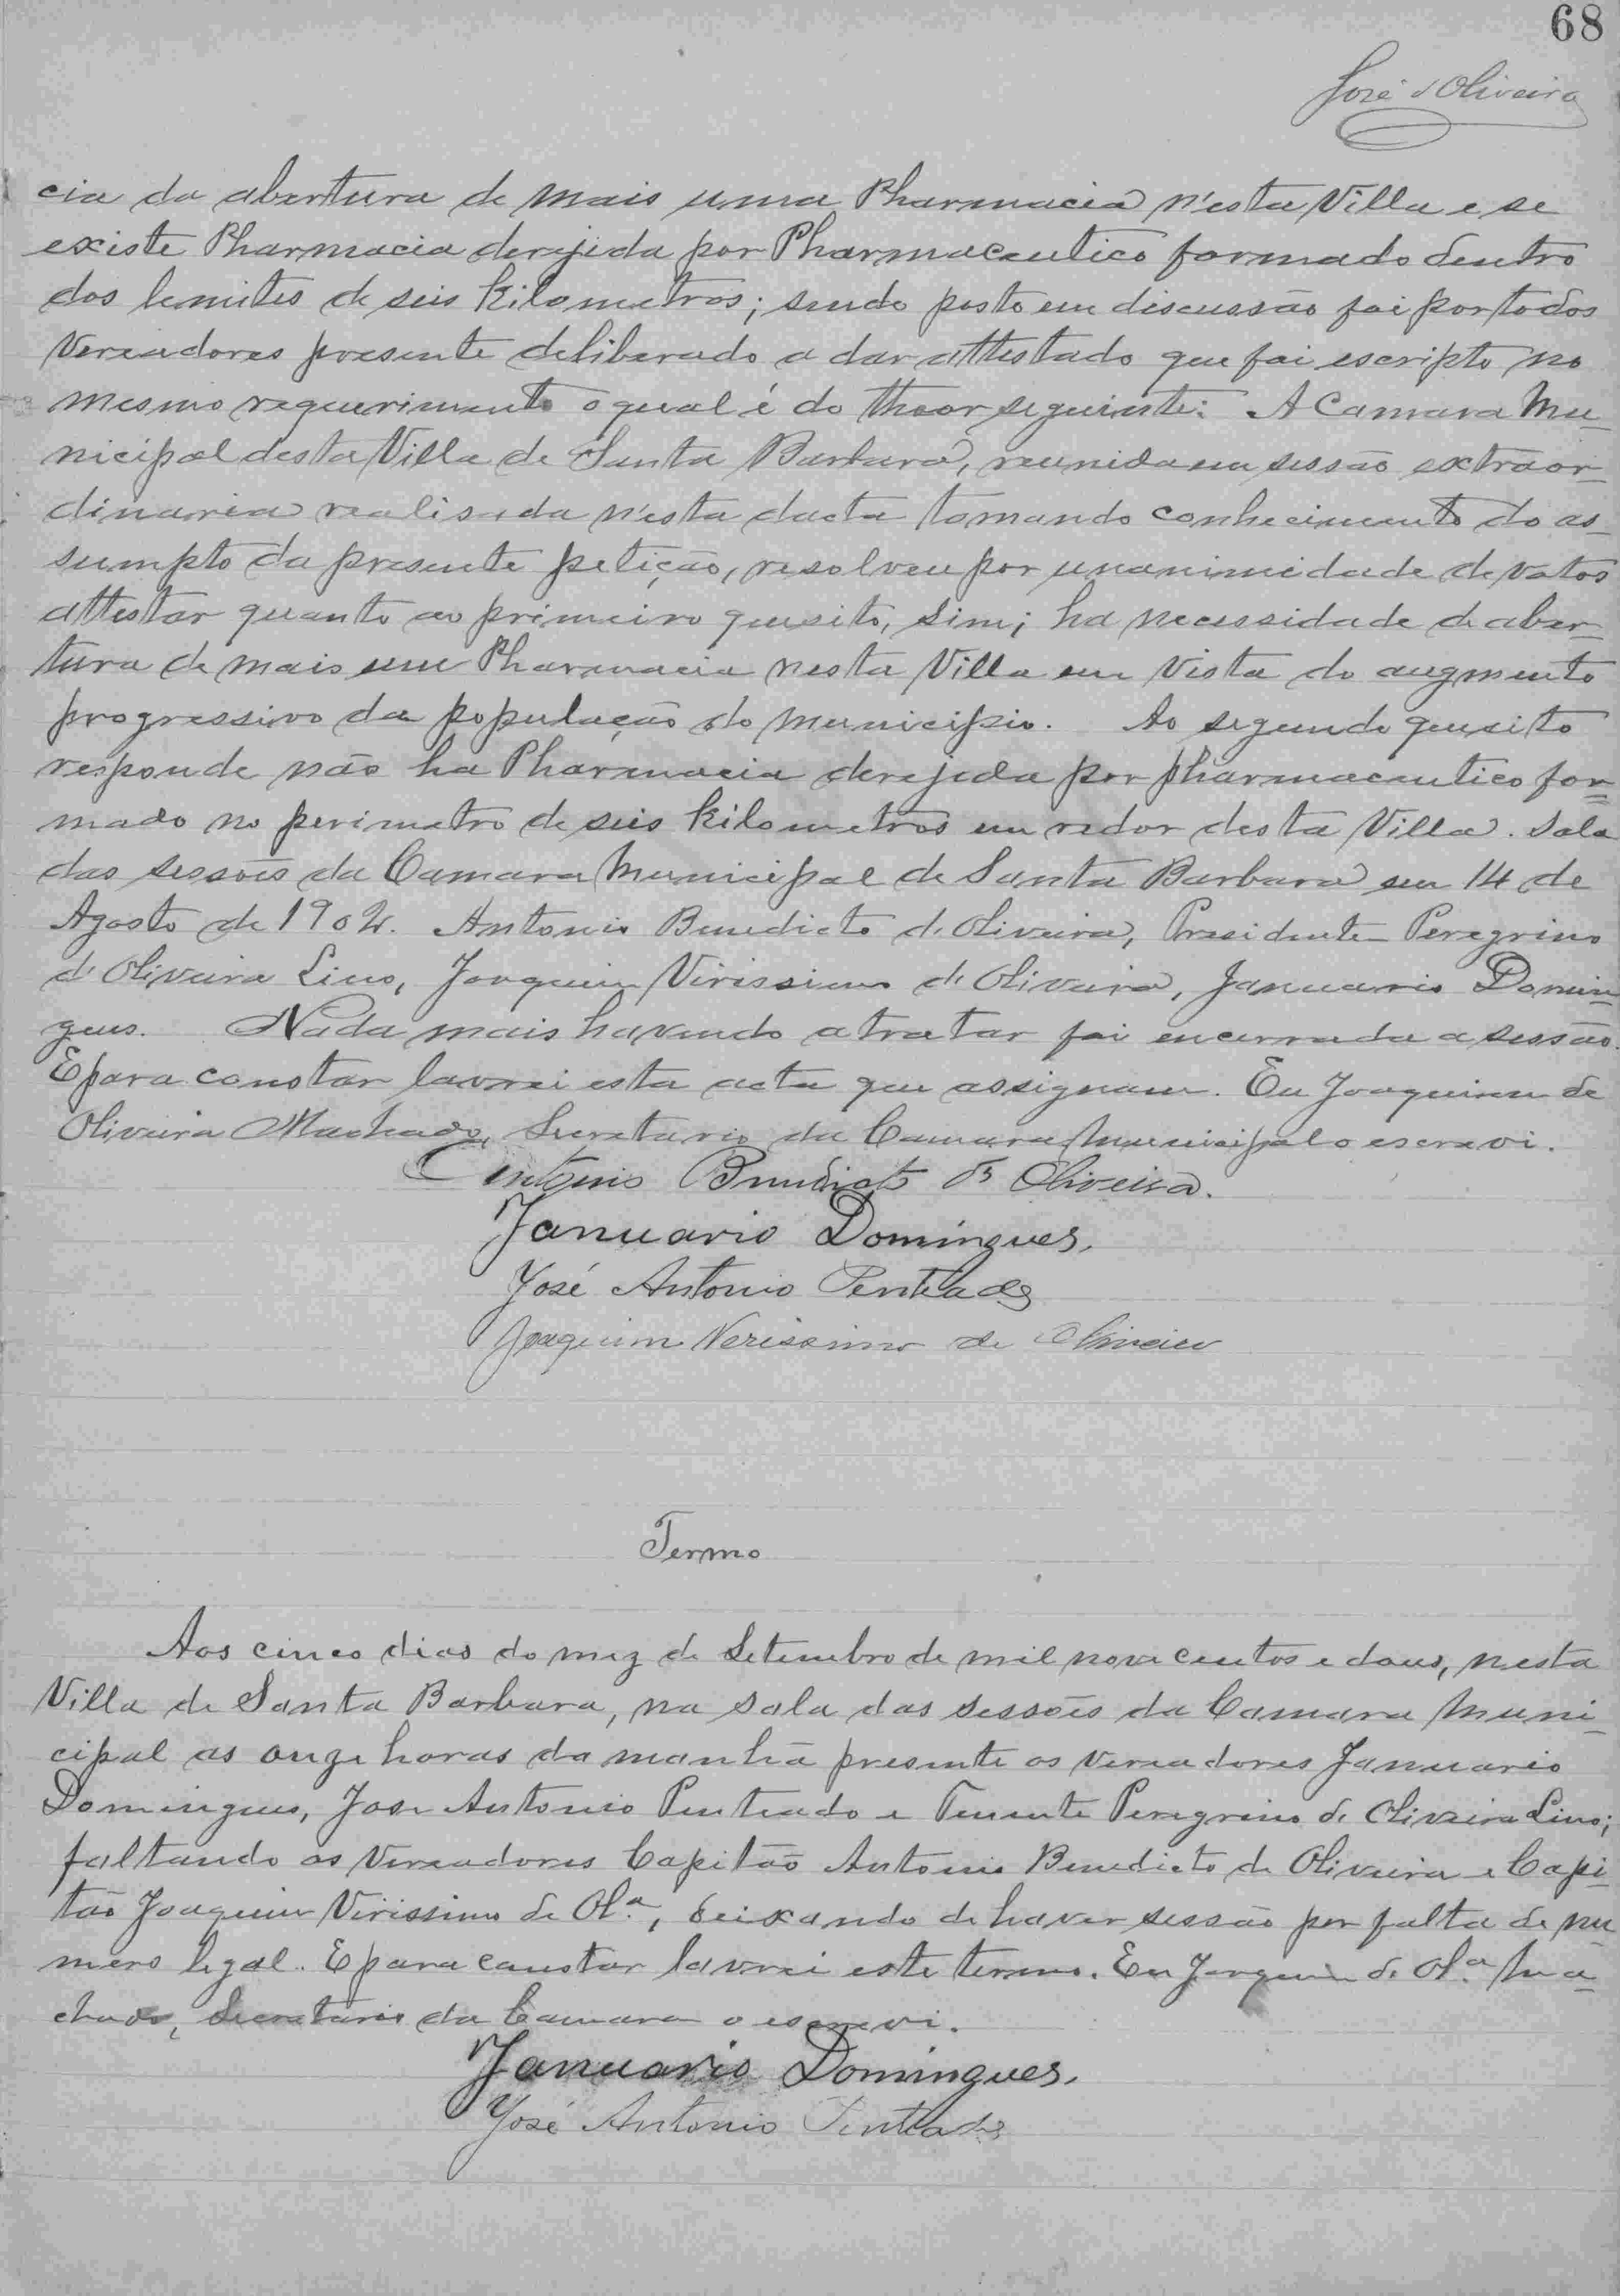 68
José d'Oliveira
cia da abertura de mais uma Pharmacia n'esta Villa e se
existe Pharmacia derejida por Pharmaceutico formado dentro
dos lemites de seis kilometros; sendo posto em discussão foi por todos
Vereadores presente deliberado a dar attestado que foi escripto no
mesmo requerimento o qual é do theor seguinte: A Camara Mu-
nicipal desta Villa de Santa Barbara, reunida em sessão extraor-
dinaria realisada n'esta dacta tomando conhecimento do as-
sumpto da presente petição, resolveu por unanimidade de votos
attestar quanto ao primeiro quesito, sim; ha necessidade de aber-
tura de mais um Pharmacia nesta Villa em vista do augmento
progressivo da população do municipio. Ao segundo quesito
responde não ha Pharmacia derejida por pharmaceutico for-
mado no perimetro de seis kilometros em redor desta Villa. Sala
das sessões da Camara Municipal de Santa Barbara em 14 de
Agosto de 1902. Antonio Benedicto d'Oliveira, Presidente Peregrino
d'Oliveira Lino, Joaquim Virissimo d'Oliveira, Januario Domin-
gues. Nada mais havendo a tratar foi encerrada a sessão.
E para constar lavrei esta acta que assignam. Eu Joaquim de
Oliveira Machado, Secretario da Camara Municipal o escrevi.
Antonio Benedicto de Oliveira.
Januario Domingues.
José Antonio Penteado
Joaquim Verissimo de Oliveira
Termo
Aos cinco dias do mez de Setembro de mil nove centos e dous, nesta
Villa de Santa Barbara, na sala das sessões da Camara Muni-
cipal as onze horas da manhã presente os vereadores Januario
Domingues, Jose Antonio Penteado e Tenente Peregrino de Oliveira Lino;
faltando os Vereadores Capitão Antonio Benedicto de Oliveira e Capi-
tão Joaquim Virissimo de Olª, deixando de haver sessão por falta de nu-
mero legal. E para constar lavrei este termo. Eu Joaquim de Olª Ma-
chado, Secretario da Camara o escrevi.
Januario Domingues.
José Antonio Penteado